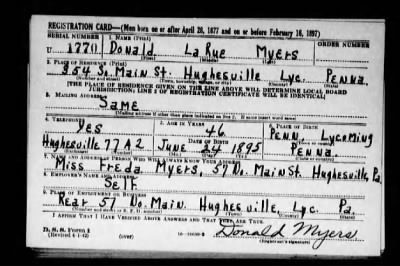 REGISTRATION CARD—(Men born on or after April 28, 1877 and on or before February 16, 1897)
SERIAL NUMBER 1. NAME (Print)
U 1770 Donald LaRue Myers
(First) (Middle) (Last)
2. PLACE OF RESIDENCE (Print)
354 So. Main St. Hughesville Lyc. Penna
(Number and street) (Town, township, village, or city) (County) (State)
[THE PLACE OF RESIDENCE GIVEN ON THE LINE ABOVE WILL DETERMINE LOCAL BOARD
JURISDICTION; LINE 2 OF REGISTRATION CERTIFICATE WILL BE IDENTICAL]
3. MAILING ADDRESS
Same
[Mailing address if other than place indicated on line 2. If same insert word same]
4. TELEPHONE 5. AGE IN YEARS 6. PLACE OF BIRTH
Yes 46 Penn, Lycoming
DATE OF BIRTH
Hughesville 77A2 June 24 1895 Penna.
(Exchange) (Number) (Mo.) (Day) (Yr.) (State or country)
7. NAME AND ADDRESS OF PERSON WHO WILL ALWAYS KNOW YOUR ADDRESS
Miss Freda Myers, 57 No. Main St. Hughesville, Pa.
8. EMPLOYER'S NAME AND ADDRESS
Self
9. PLACE OF EMPLOYMENT OR BUSINESS
Rear 51 No. Main. Hughesville, Lyc. Pa.
(Number and street or R. F. D. number) (Town) (County) (State)
I AFFIRM THAT I HAVE VERIFIED ABOVE ANSWERS AND THAT THEY ARE TRUE.
D. S. S. Form 1
(Revised 4-1-42) (over) Donald Myers
(Registrant's signature)